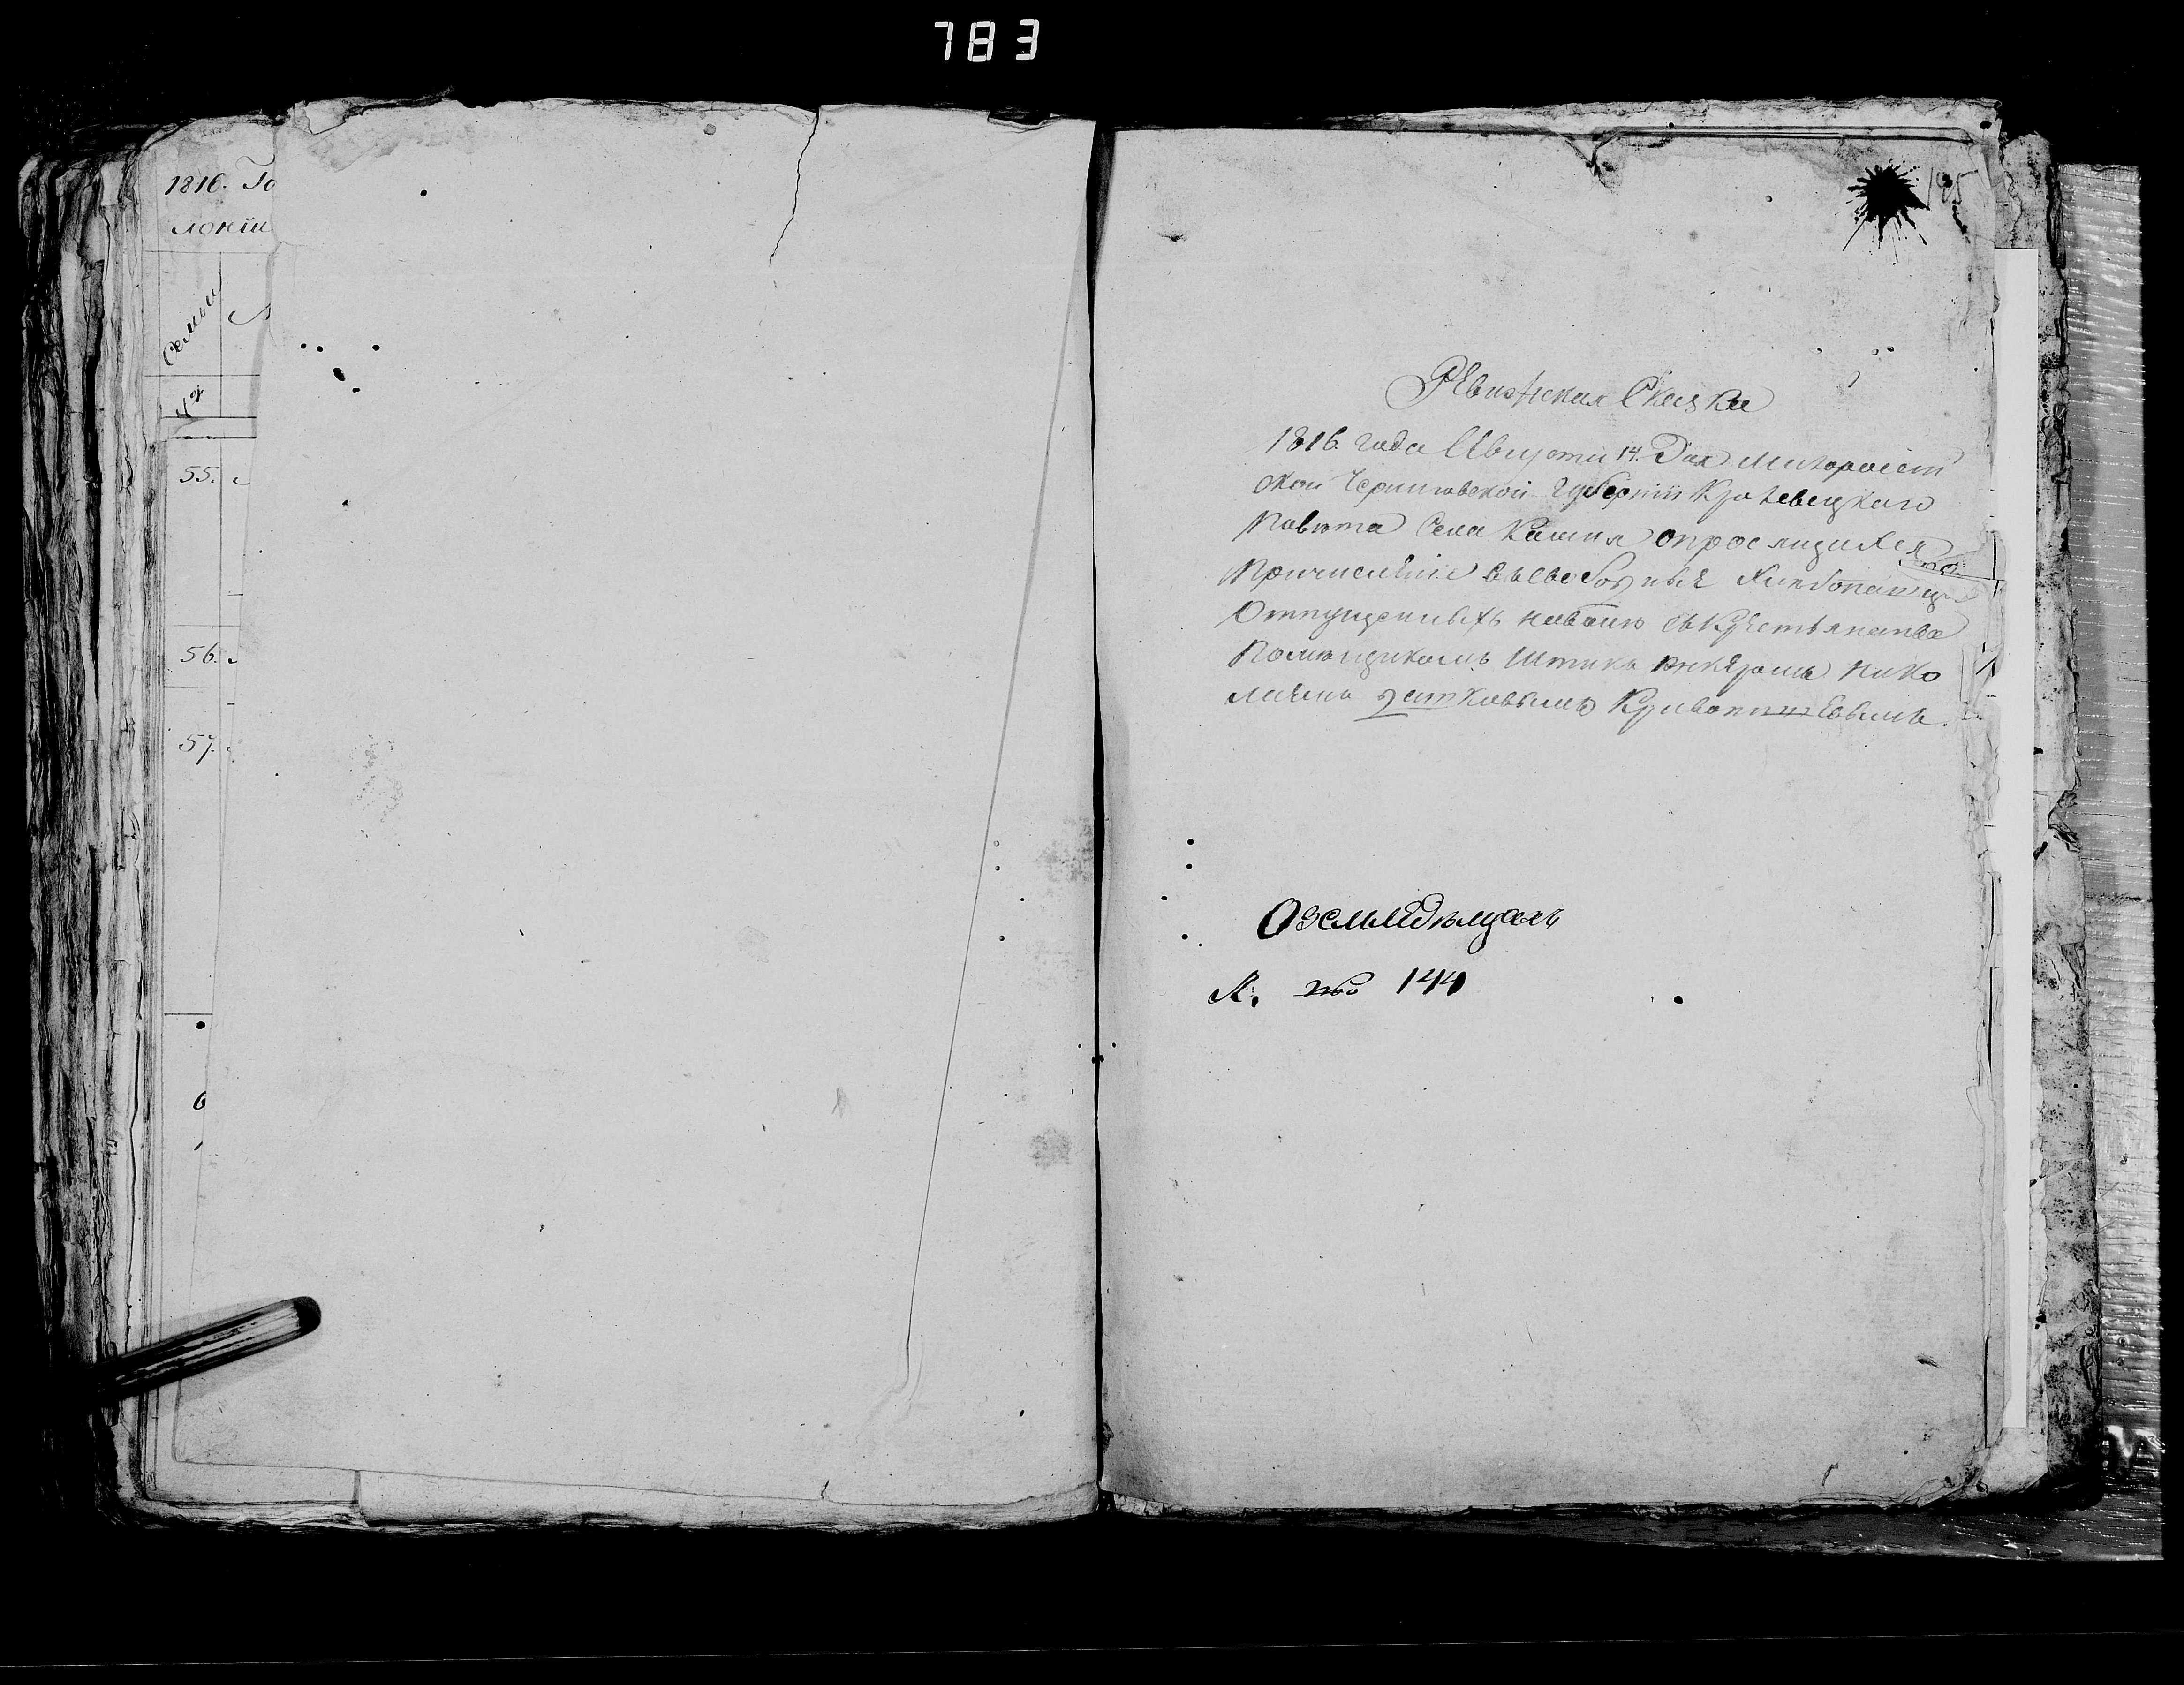 783
1816. Го
лонїи
Семьи
55.
56.
57.
6
1
Ревизская Сказка
1816. года Августа 14. Дня Малоросїй
ской Черниговской Губернїи Кролевецкаго
Повѣта Села Камня о просящихся
Причисленїя въ свободные Хлѣбопашцы
Отпущенныхъ на волю съ Крестьянства
Помѣщикомъ Штыкъ юнкеромъ Нико
лаемъ Кривопишевымъ.
О земледѣлцахъ
144